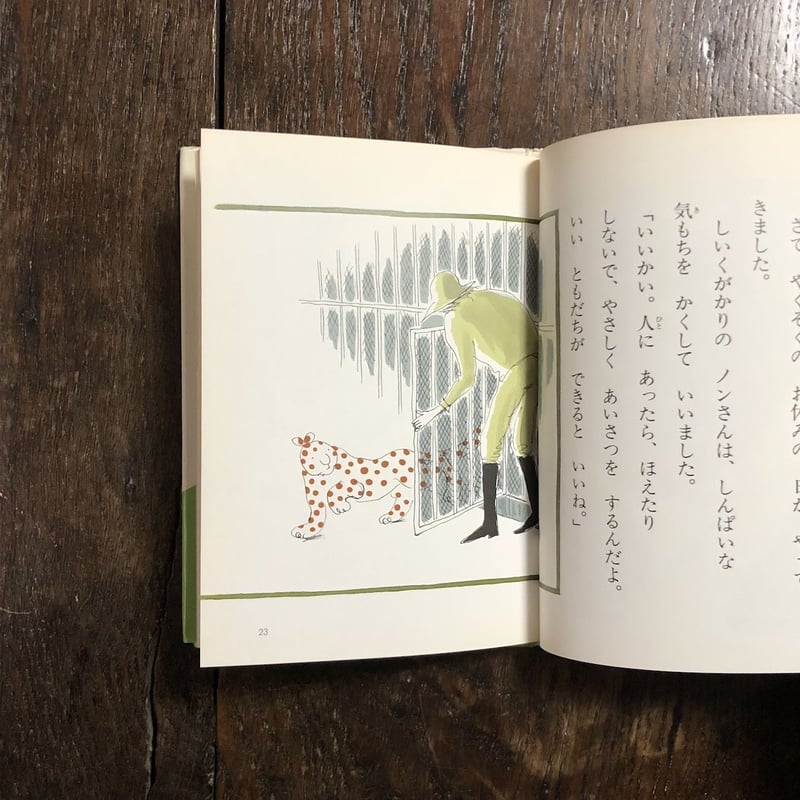 さて やくそくの お休みの 日が やって
きました。
しいくがかりの ノンさんは、しんぱいな
気もちを かくして いいました。
「いいかい。人に あったら、ほえたり
しないで、やさしく あいさつを するんだよ。
いい ともだちが できると いいね。」
23